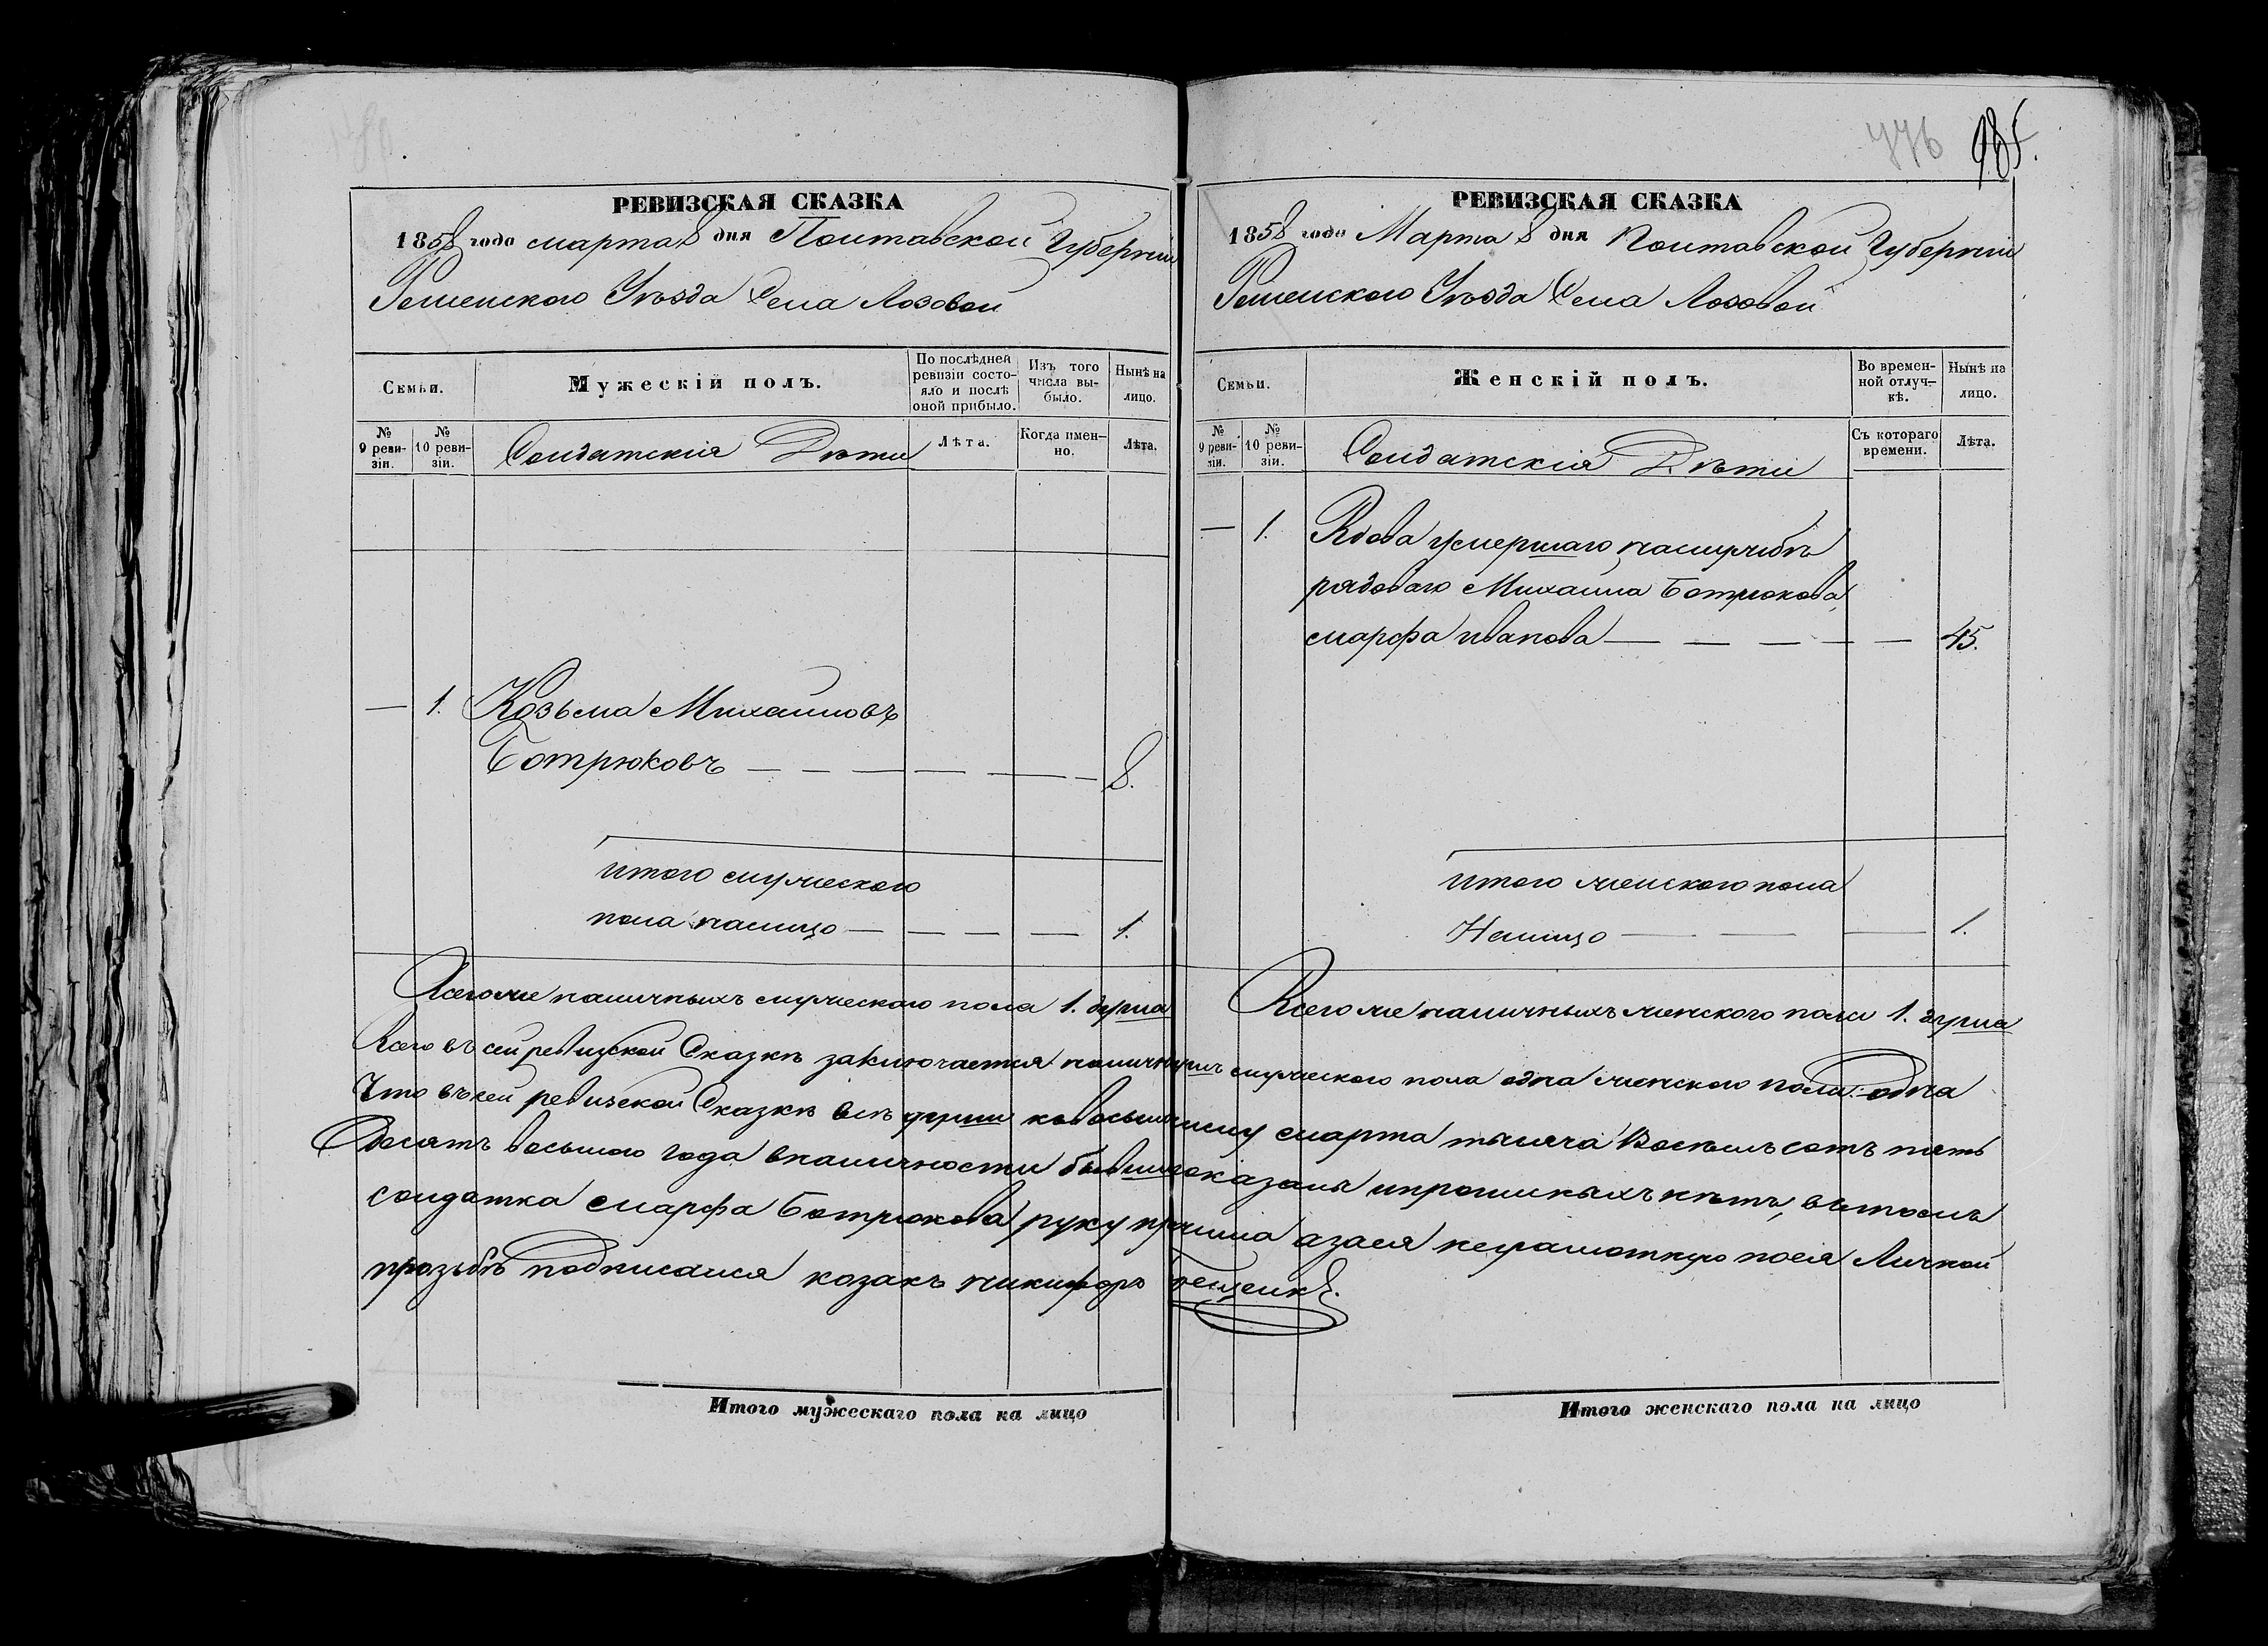 776 985.
РЕВИЗСКАЯ СКАЗКА
1858 года марта 8 дня Полтавской Губернии
Роменского Уѣзда Села Лозовой
Семьи.
Мужескій полъ.
По послѣдней ревизіи состояло и послѣ оной прибыло.
Изъ того числа выбыло.
Нынѣ на лицо.
№ 9 ревизіи.
№ 10 ревизіи.
Солдатскія Дѣти
Лѣта.
Когда именно.
Лѣта.
— 1. Козьма Михайловъ
Ботрюковъ — — — — — — 8.
итого мужеского
пола налицо — — — — 1.
РЕВИЗСКАЯ СКАЗКА
1858 года Марта 8 дня Полтавской Губернии
Роменского Уѣзда Села Лозовой
Семьи.
Женскій полъ.
Во временной отлучкѣ.
Нынѣ на лицо.
№ 9 ревизіи.
№ 10 ревизіи.
Солдатскія Дѣти
Съ котораго времени.
Лѣта.
— 1. Вдова умершаго наслужбѣ
рядоваго Михаила Ботрюкова,
марфа иванова — — — — — 45.
итого женского пола
Налицо — — — 1.
Всегоже наличныхъ мужескаго пола 1. душа
Всегоже наличныхъ женского пола 1. душа
Всего въ сей ревизской Сказкѣ заключается наличныхъ мужеского пола одна женского пола: одна
Что въ сей ревизской Сказкѣ всѣ души ковосьмому числу марта тысяча Восемь сотъ пять
Десятъ восьмого года вналичности бывши показаны ипрописныхъ нѣтъ, въ томъ
солдатка марфа Ботрюкова руку приложила азаея неграмотную поея Личной
прозьбѣ подписался козакъ никифоръ
Итого мужескаго пола на лицо
Итого женскаго пола на лицо